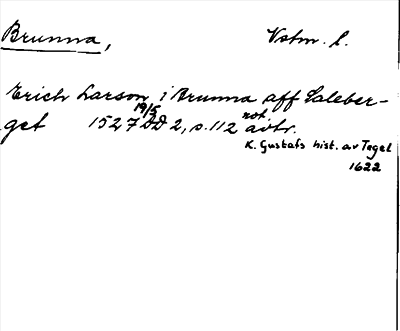 Brunna, Vstm. l.
Erich Larson i Brunna aff Saleber-
get 1527 19/5 DD 2, s. 112 not avtr.
K. Gustafs hist. av Tegel
1622